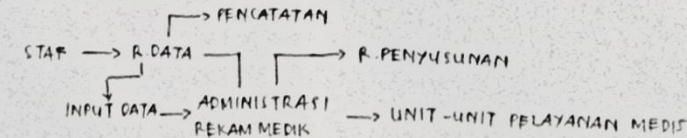 PENCATATAN
STAF R. DATA R. PENYUSUNAN
INPUT DATA ADMINISTRASI
REKAM MEDIK UNIT-UNIT PELAYANAN MEDIS